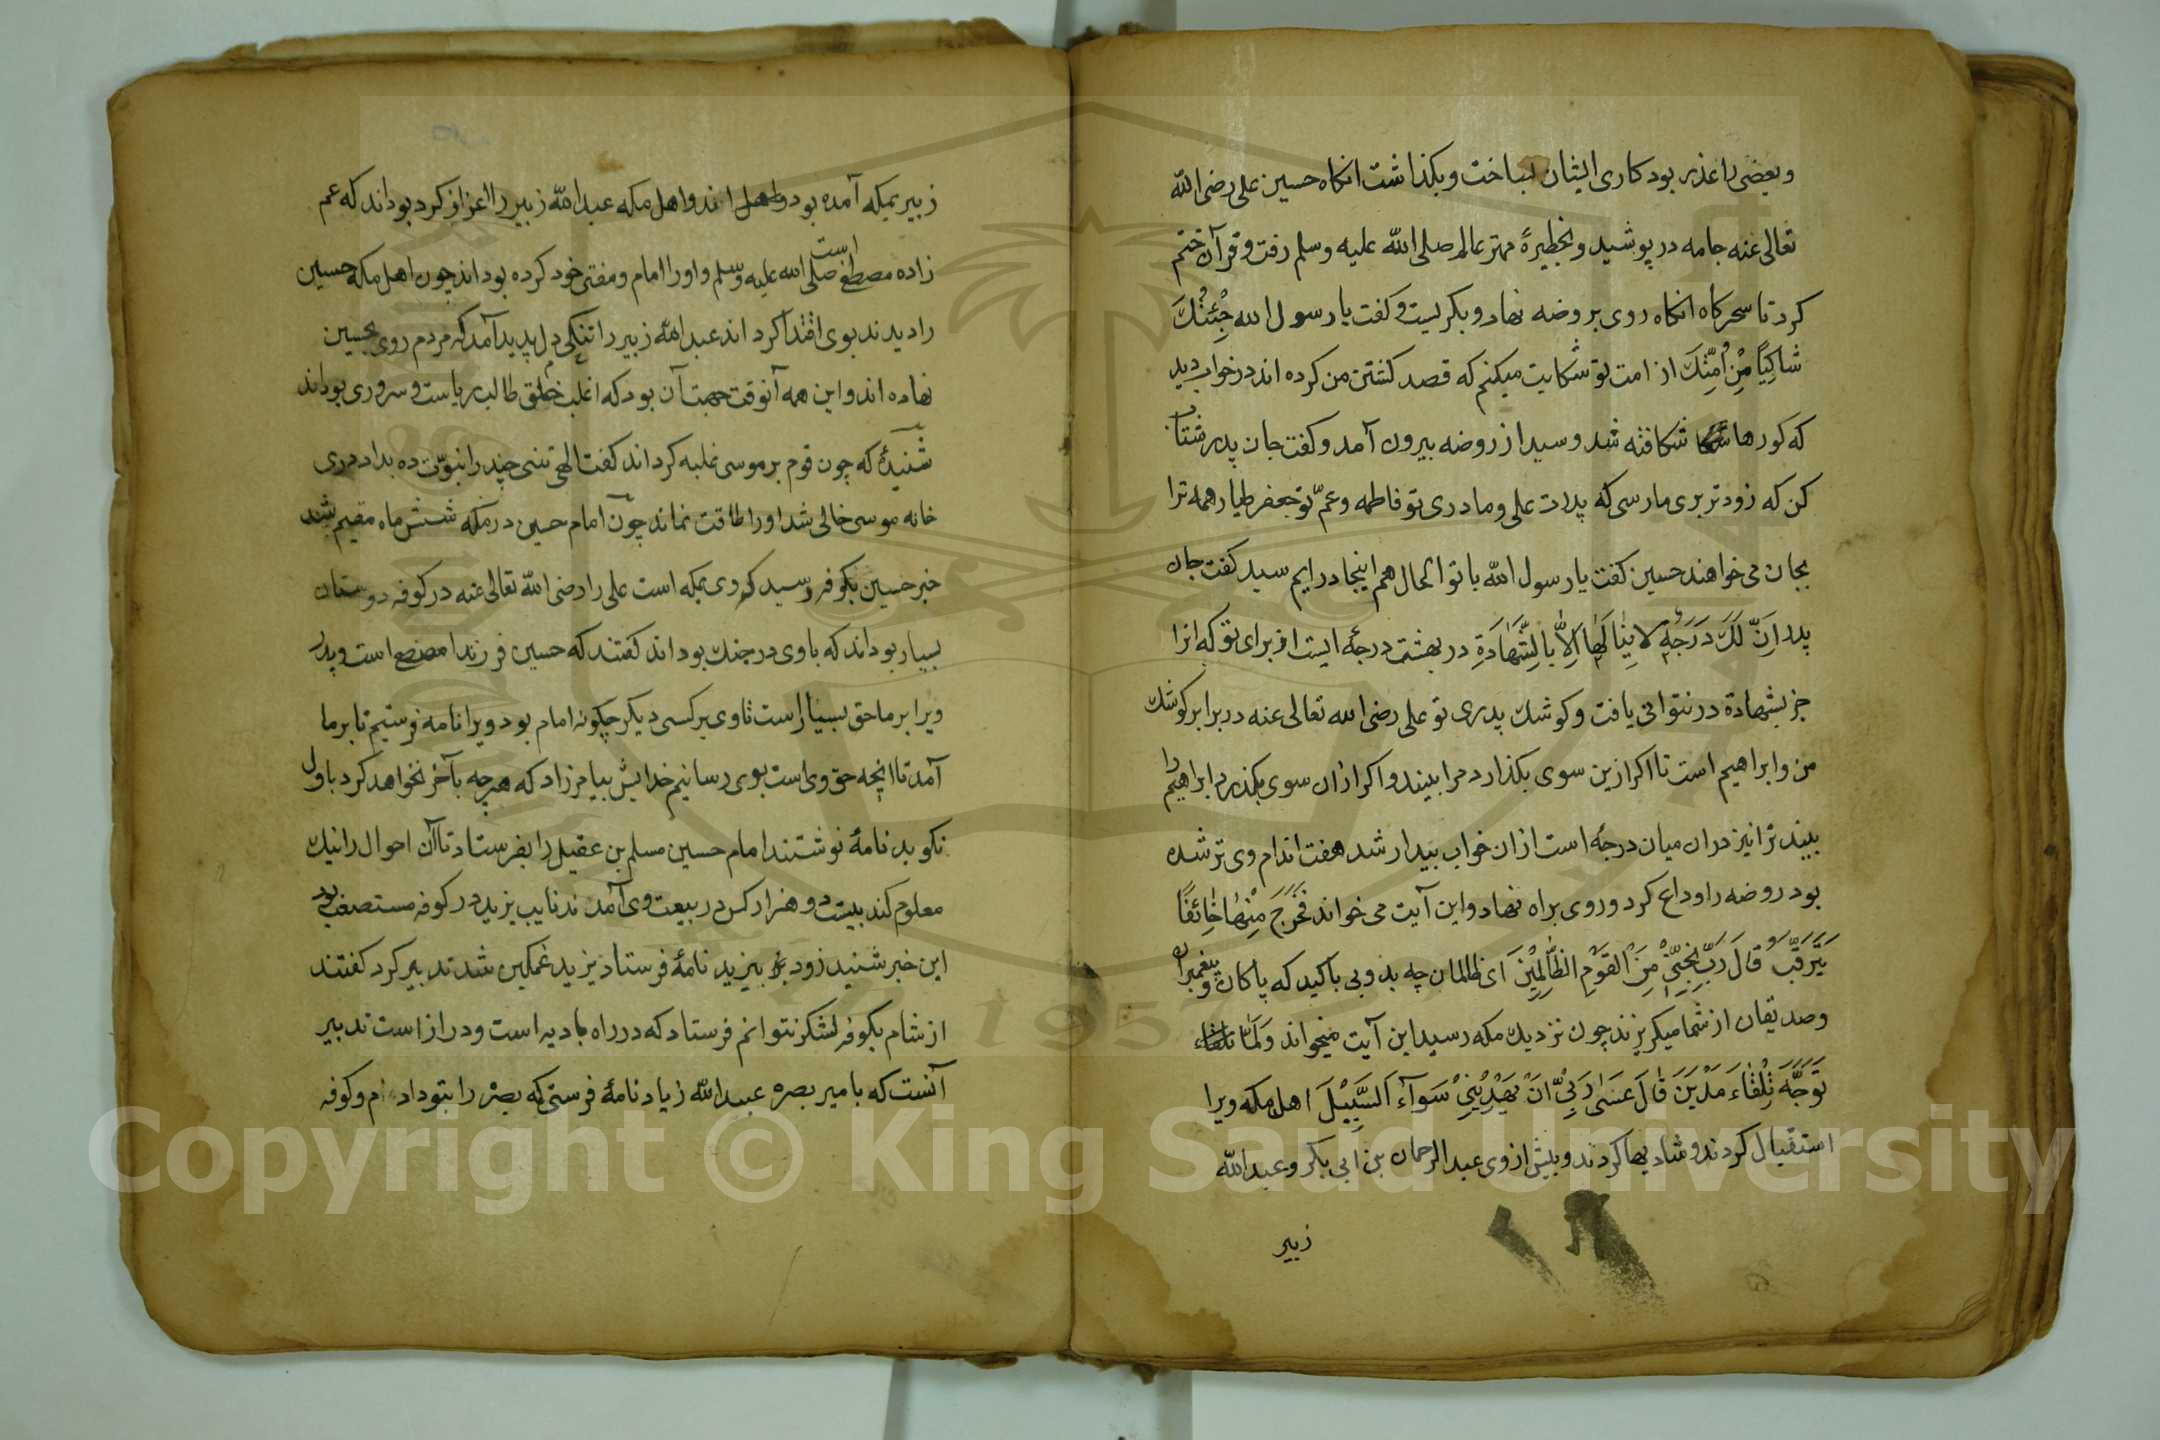 وبعضی را عذر بود کاری ایشان بساخت وبکذاشت انکاه حسین علی رضی الله
تعالی عنه جامه در پوشید وبخطیرهٔ مهتر عالم صلی الله علیه وسلم رفت وقرآن ختم
کرد تا سحرکاه انکاه روی بروضه نهاد وبکریست وکفت یا رسول الله جِئْتُكَ
شَاكِيًا مِنْ اُمَّتِكَ از امت تو شکایت میکنم که قصد کشتن من کرده اند در خواب دید
که کورها شکافته شد وسید از روضه بیرون آمد وکفت جان پدر شتاب
کن که زودتر بری ما رسی که پدرت علی ومادری تو فاطمه وعمّ تو جعفر طیار همه ترا
بجان می خواهند حسین کفت یا رسول الله با تو الحال هم اینجا درایم سید کفت جان
پدر اِنَّ لَكَ دَرَجَةٍ لا يَنَالُهَا اِلاَّ بِالشَّهَادَةِ در بهشت درجهٔ ایست از برای تو که انرا
جز بشهادة در نتوانی یافت وکوشك پدری تو علی رضی الله تعالی عنه در برابر کوشك
من وابراهیم است تا اکر ازین سوی بکذارد مرا بیند واکر ازان سوی بکذرد ابراهیم را
بیند ترا نیز دران میان درجهٔ است ازان خواب بیدار شد هفت اندام وی تر شده
بود روضه را وداع کرد وروی براه نهاد واین آیت می خواند فَخَرَجَ مِنْهَا خَائِفًا
يَتَرَقَّبُ قَالَ رَبِّ نَجِّنِيْ مِنَ الْقَوْمِ الظَّالِمِيْنَ ای ظالمان چه بد وبی باکید که پاکان وپیغمبران
وصدیقان از شما میکریزند چون نزدیك مکه رسید این آیت میخواند وَلَمَّا تلقاء
تَوَجَّهَ تِلْقَاءَ مَدْيَنَ قَالَ عَسٰى رَبِّيْ اَنْ يَهْدِيَنِيْ سَوَآءَ السَّبِيْلَ اهل مکه ویرا
استقبال کردند وشادیها کردند وپیش از وی عبد الرحمان بن ابی بکر وعبد الله
زبیر
زبیر بمکه آمده بود واهل مکه عبد الله زبیر را اعزاز کرد بوداند که عم
زاده مصطفی است صلی الله علیه وسلم واورا امام ومفتی خود کرده بوداند چون اهل مکه حسین
را دیدند بوی اقتدا کرد اند عبد الله زبیر را تنکی دل پدید آمد که مردم روی بحسین
نهاده اند واین همه آنوقت جهت آن بود که اغلب خلق طالب ریاست وسروری بوداند
شنیدهٔ که چون قوم بر موسی غلبه کرداند کفت الهی تنی چند را نبوّت ده بداد دری
خانه موسی خالی شد اورا طاقت نماند چون امام حسین در مکه شش ماه مقیم شد
خبر حسین بکوفه رسید که وی بمکه است علی را رضی الله تعالی عنه در کوفه دوستان
بسیار بوداند که با وی در جنك بوداند کفتند که حسین فرزند مصطفی است وپدر
ویرا بر ما حق بسیار است تا وی بر کسی دیکر چکونه امام بود ویرا نامه فرستیم تا بر ما
آمد تا انچه حق وی است بوی رسانیم خدایش بیامرزاد که هر چه بآخر نخواهد کرد باول
نکوید نامهٔ نوشتند امام حسین مسلم بن عقیل را بفرستاد تا آن احوال را نیك
معلوم کند بیست و هزار کس در بیعت وی آمدند نایب یزید در کوفه مستضعف بود
این خبر شنید زود بیزید نامهٔ فرستاد یزید غمکین شد تدبیر کرد کفتند
از شام بکوفه لشکر نتوانم فرستاد که در راه بادیه است ودراز است تدبیر
آنست که با میر بصره عبد الله زیاد نامهٔ فرستی که بصره را بتو دادم وکوفه
Copyright © King Saud University
195